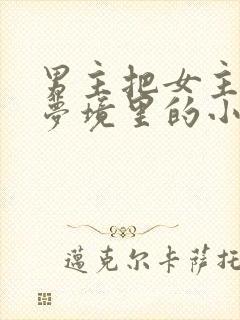 男主把女主
夢境里的小
邁克尔卡萨托